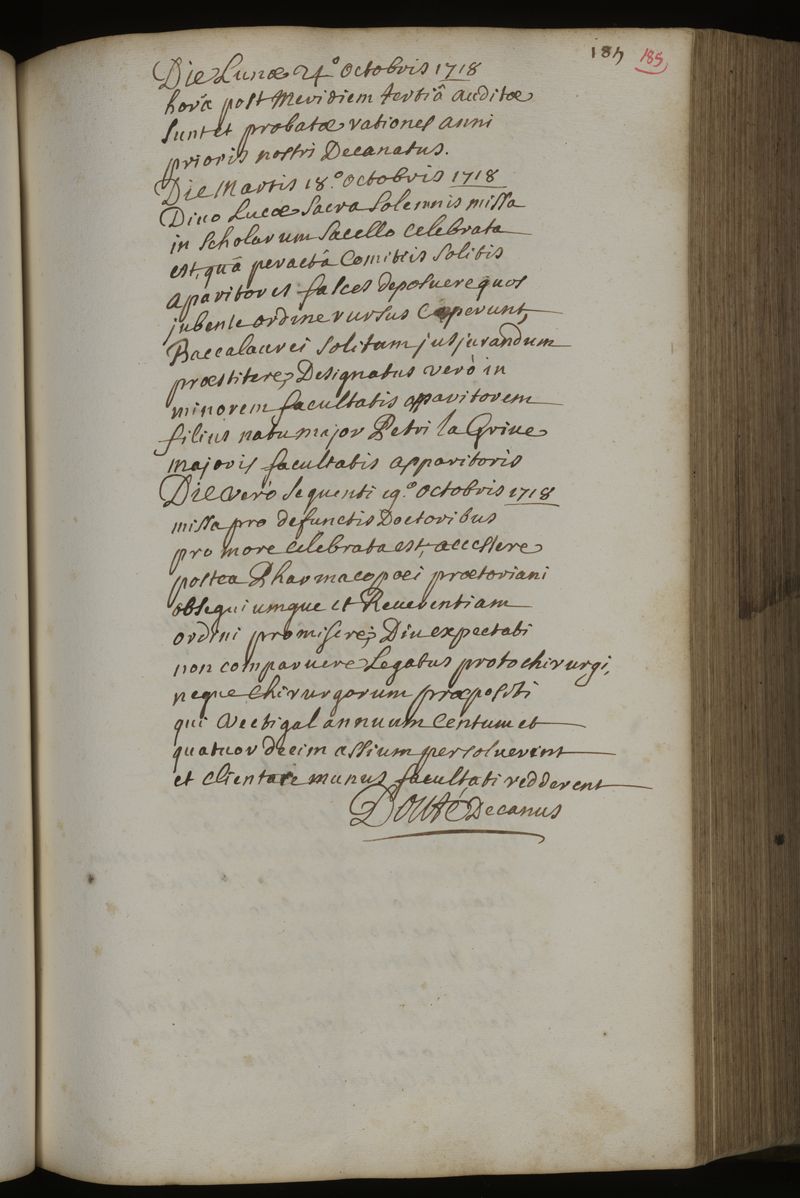 185 185
Die Lunæ 24º octobris 1718
horâ post Meridiem tertiâ auditæ
sunt et probatæ rationes anni
prioris nostri Decanatus.
Die Martis 18.º octobris 1718
Divo Lucæ Sacra Solemnis missa
in Scholarum Sacello celebrata
est, quâ peractâ Comitiis Solitis
aparitores fasces deposuere quos
jubente ordine rursus Ceperunt,
Baccalaurei Solitum jusjurandum
præstitere, Designatus verò in
minorem facultatis apparitorem
filius natu major Petri la Grive
majoris facultatis apparitoris
Die verò Sequenti 19.º octobris 1718
missa pro defunctis Doctoribus
pro more celebrata est, accessere
postea Pharmacopoei prætoriani
obsequiumque et Reverentiam
ordini promisere; Diu expectati
non comparuere Legatus protochirurgi,
neque Chirurgorum præpositi
qui Vectigal annuum Centum et
quatuor decim assium persolverent
et clientare munus facultati redderent
Douté Decanus